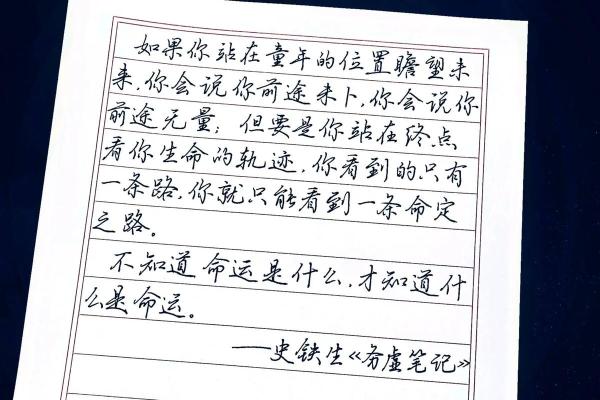 如果你站在童年的位置瞻望未
来,你会说你前途未卜,你会说你
前途无量;但要是你站在终点
看你生命的轨迹,你看到的只有
一条路,你就只能看到一条命定
之路。
不知道命运是什么,才知道什
么是命运。
——史铁生《务虚笔记》